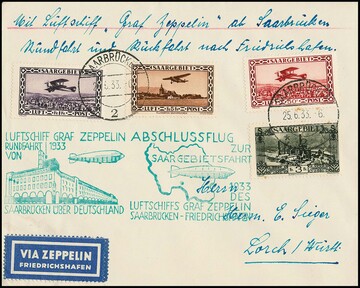 Mit Luftschiff "Graf Zeppelin" ab Saarbrücken
Rundfahrt und Rückfahrt nach Friedrichshafen.
SAARGEBIET
LUFT POST
SAARGEBIET
LUFT POST
SAARGEBIET
LUFT POST
SAARBRÜCK
5.6.33.
2
25.6.33. -6.
SAARGEBIET
LUFTSCHIFF GRAF ZEPPELIN
RUNDFAHRT 1933
VON
SAARBRÜCKEN ÜBER DEUTSCHLAND
ABSCHLUSSFLUG
ZUR
SAARGEBIETSFAHRT
1933
DES
LUFTSCHIFFS GRAF ZEPPELIN
SAARBRÜCKEN-FRIEDRICHSHAFEN
Herrn
Herrn. E. Sieger
Lorch / Württ.
VIA ZEPPELIN
FRIEDRICHSHAFEN